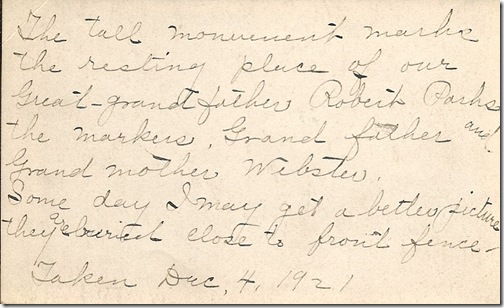 The tall monument marks
the resting place of our
Great-grandfather Robert Parks
the markers, Grand father and
Grand mother Webster.
Some day I may get a better picture
they are buried close to front fence-
Taken Dec, 4, 1921